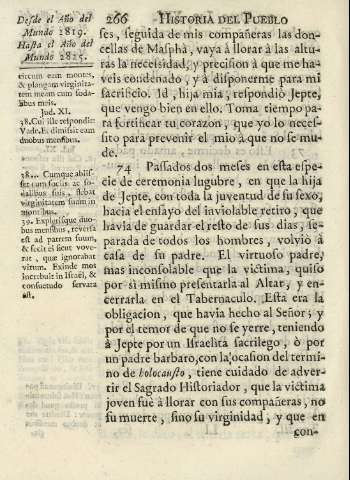 Desde el Año del
Mundo 2819.
Hasta el Año del
Mundo 2825.
266 HISTORIA DEL PUEBLO
ses, seguida de mis compañeras las don-
cellas de Maspha, vaya à llorar à las altu-
ras la necesidad, y precision à que me ha-
veis condenado, y à disponerme para mi
sacrificio. Id, hija mia, respondiò Jepte,
que vengo bien en ello. Toma tiempo pa-
ra fortificar tu corazon, que yo lo neces-
sito para prevenir el mio à que no se mu-
de.
74 Passados dos meses en esta espe-
cie de ceremonia lugubre, en que la hija
de Jepte, con toda la juventud de su sexo,
hacia el ensayo del inviolable retiro, que
havia de guardar el resto de sus dias, se-
parada de todos los hombres, volviò à
casa de su padre. El virtuoso padre,
mas inconsolable que la victima, quiso
por sì mismo presentarla al Altar, y en-
cerrarla en el Tabernaculo. Esta era la
obligacion, que havia hecho al Señor; y
por el temor de que no se yerre, teniendo
à Jepte por un Israelita sacrilego, ò por
un padre barbaro, con la ocasion del termi-
no de holocausto, tiene cuidado de adver-
tir el Sagrado Historiador, que la victima
joven fuè à llorar con sus compañeras, no
su muerte, sino su virginidad, y que en
con-
circum eam montes,
& plangam virginita-
tem meam cum soda-
libus meis.
Jud. XI.
38. Cui ille respondit:
Vade. Et dimisit eam
duobus mensibus.
38... Cumque abiis-
set cum sociis ac so-
dalibus suis, flebat
virginitatem suam in
montibus.
39. Expletisque duo-
bus mensibus, reversa
est ad patrem suum,
& fecit ei sicut vove-
rat, quæ ignorabat
virum. Exinde mos
increbuit in Israël, &
consuetudo servata
est,